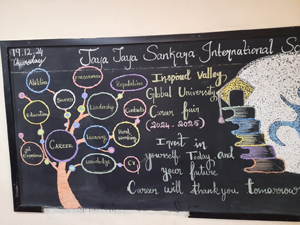 19.12.24
Thursday
Jaya Jaya Sankara International Sc
Inspired Valley
Global University
Career fair
(2024 - 2025)
Invest in
yourself Today and
your future
Career will thank you tomorrow
Ambition
Success
Reputation
Leadership
Contacts
Education
Learning
Hard working
Job Experience
Knowledge
CV
CAREER